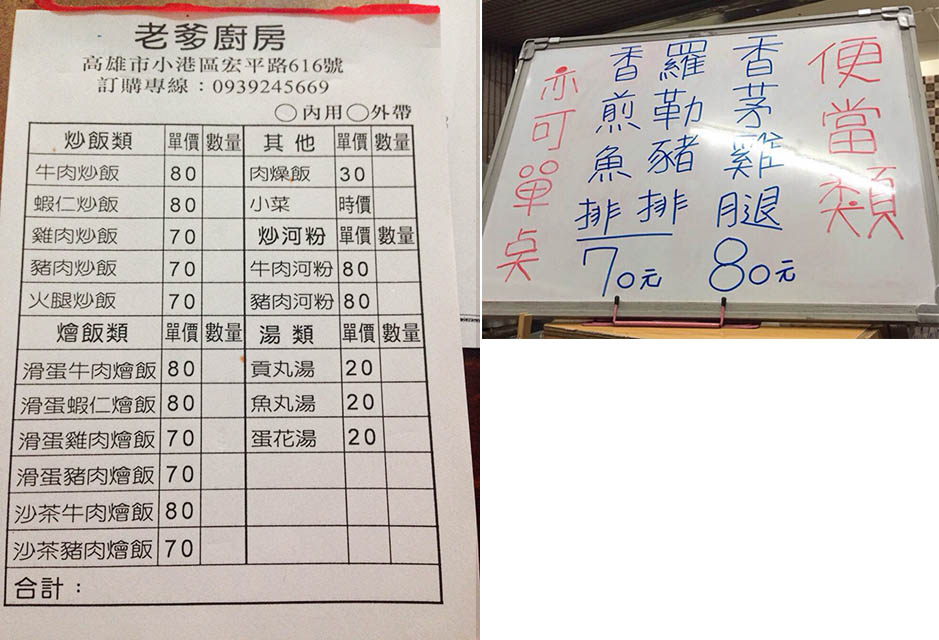 老爹廚房
高雄市小港區宏平路616號
訂購專線：0939245669
○內用○外帶
炒飯類 單價 數量 其他 單價 數量
牛肉炒飯 80 肉燥飯 30
蝦仁炒飯 80 小菜 時價
雞肉炒飯 70 炒河粉 單價 數量
豬肉炒飯 70 牛肉河粉 80
火腿炒飯 70 豬肉河粉 80
燴飯類 單價 數量 湯類 單價 數量
滑蛋牛肉燴飯 80 貢丸湯 20
滑蛋蝦仁燴飯 80 魚丸湯 20
滑蛋雞肉燴飯 70 蛋花湯 20
滑蛋豬肉燴飯 70
沙茶牛肉燴飯 80
沙茶豬肉燴飯 70
合計：
便當類
香茅雞腿 80元
羅勒豬排
香煎魚排
70元
亦可單桌